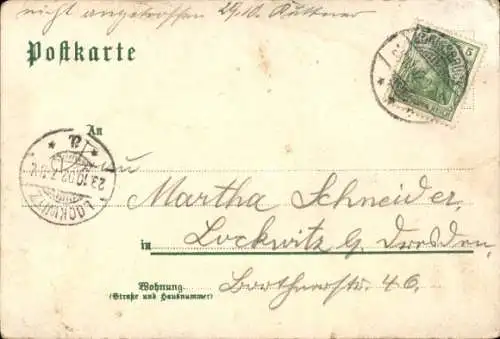 nicht angetroffen 24/10. Kuttner
Postkarte
5
An
23.10.02. 7-8 V.
LOCKWITZ
Martha Schneider,
in Lockwitz g. Dresden,
Wohnung Borthnerstr. 46.
(Straße und Hausnummer)